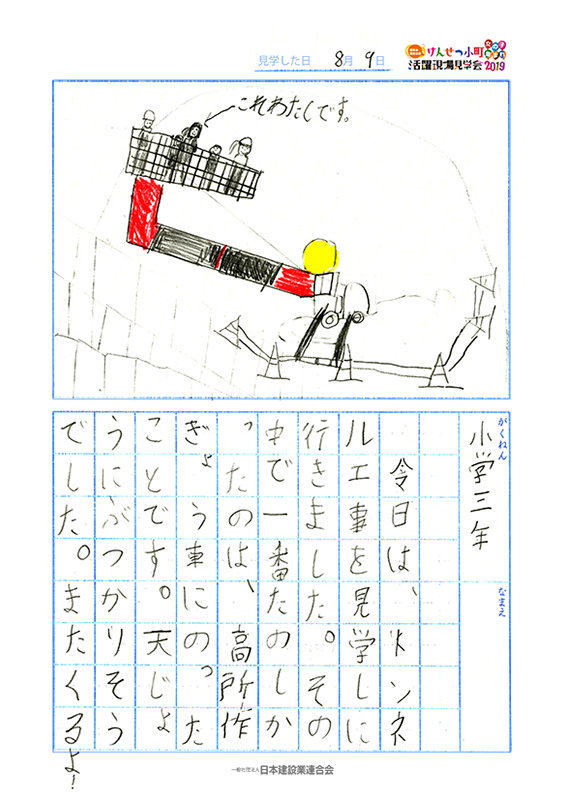 見学した日 8月9日
けんせつ小町
活躍現場見学会2019
これわたしです。
がくねん
小学三年
なまえ
今日は、トンネ
ル工事を見学しに
行きました。その
中で一番たのしか
ったのは、高所作
ぎょう車にのった
ことです。天じょ
うにぶつかりそう
でした。またくるよ!
一般社団法人 日本建設業連合会